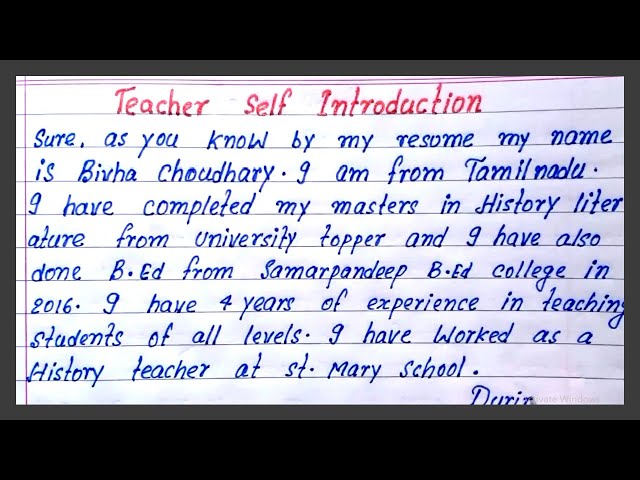 Teacher Self Introduction
Sure, as you know by my resume my name
is Bivha Choudhary. I am from Tamilnadu.
I have completed my masters in History liter
ature from University topper and I have also
done B.Ed from Samarpandeep B.Ed college in
2016. I have 4 years of experience in teaching
students of all levels. I have worked as a
History teacher at st. Mary School.